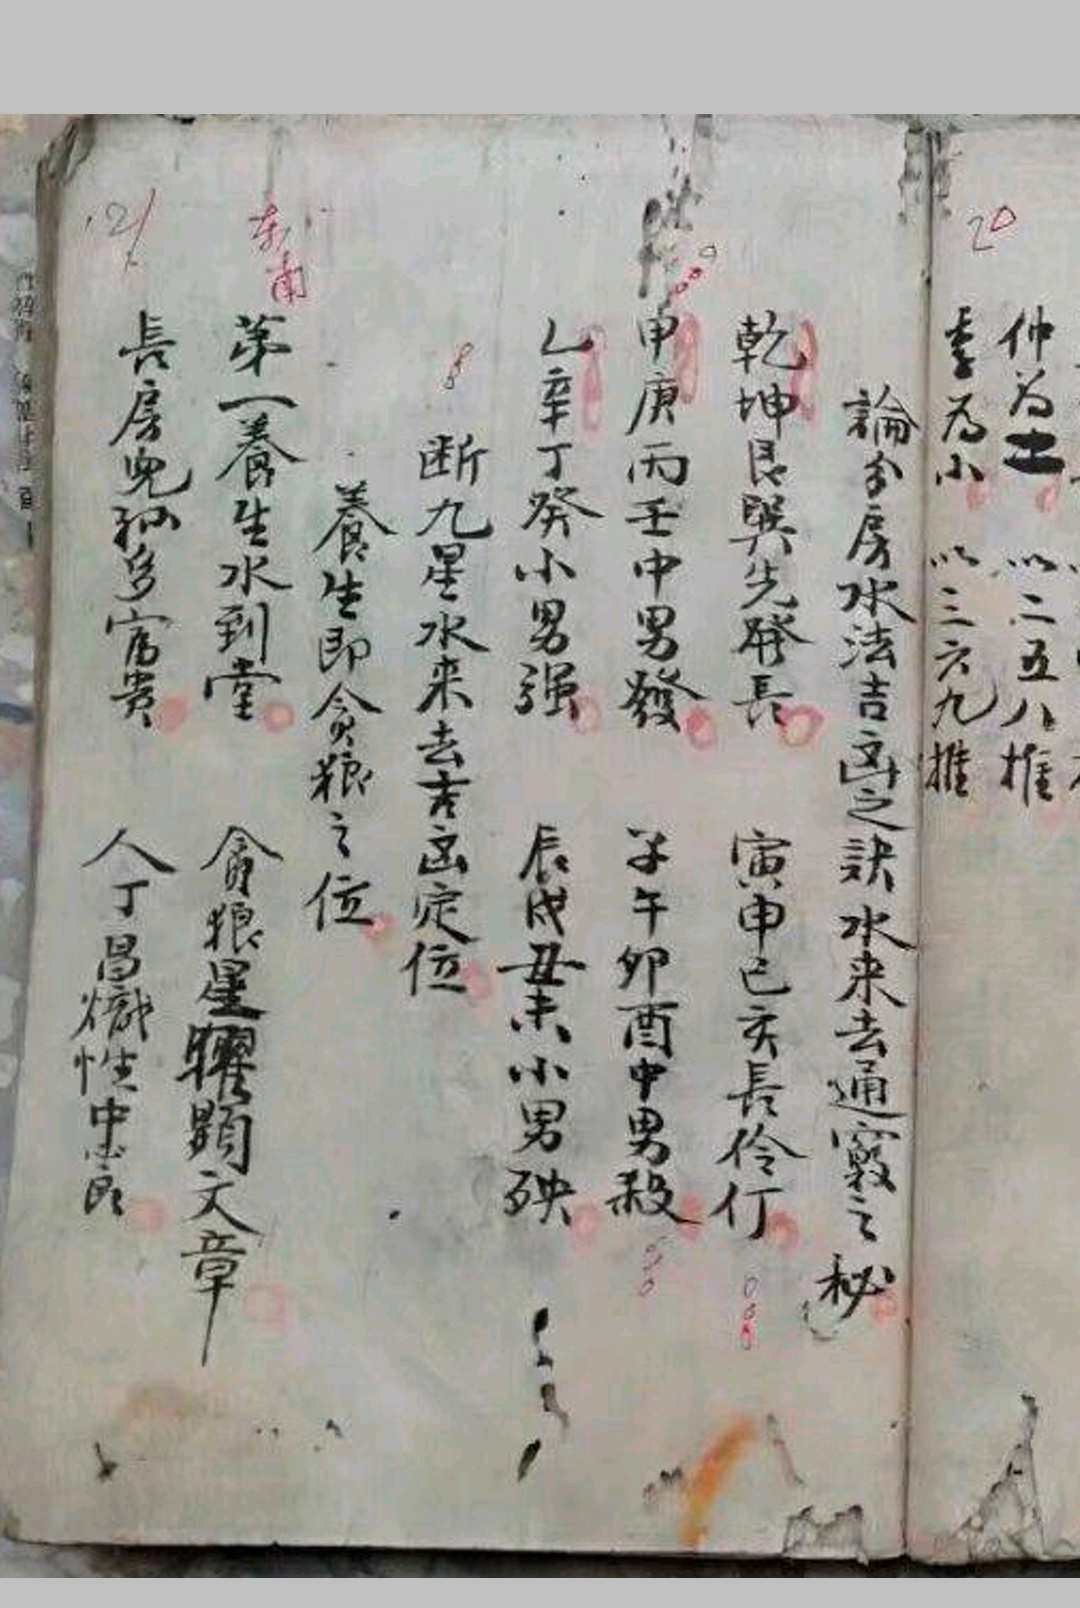 20
仲为 以二五八推
季为小 以三六九推
21
論分房水法吉凶之訣水来去通竅之秘
乾坤艮巽先發長 寅申巳亥長伶仃
甲庚丙壬中男發 子午卯酉中男殺
乙辛丁癸小男强 辰戌丑未小男殃
断九星水来去吉凶定位
養生即貪狼之位
第一養生水到堂 貪狼星耀顕文章
長房兒孙多富贵 人丁昌熾性忠良